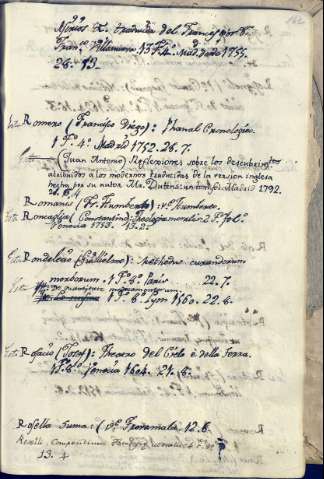 162
traducidos del Frances por D.
Fran.co Villanueva. 13 T. 4.º Madrid año 1755.
28. 13.
Romero (Francisco Diego): Manal Cronologico.
1 T. 4.º Madrid 1752. 26. 7.
(Juan Antonio) Reflexiones sobre los Descubrim.tos
atribuidos a los modernos traducidas de la version inglesa
hecha por su autor Mr. Dutens Madrid 1792.
Romanis (Fr. Humberto): V.e Humberto.
Roncaglia (Constantino) Theologia moralis 2 T. fol.
Venecia 1753. 13. 2.
Rondelecio (Guillielmo): Methodus curandorum
morborum. 1 T. 8.º Paris 22. 7.
De quantitate
1 T. 8.º Lyon 1560. 22. 6.
Rosacio (Josef): Theatro del Cielo e della Terra.
1 T. 8.º Venecia 1604. 21. 8.
Rosella Suma: (V.e Trovamala. 12. 6.
Compositiones
13. 4